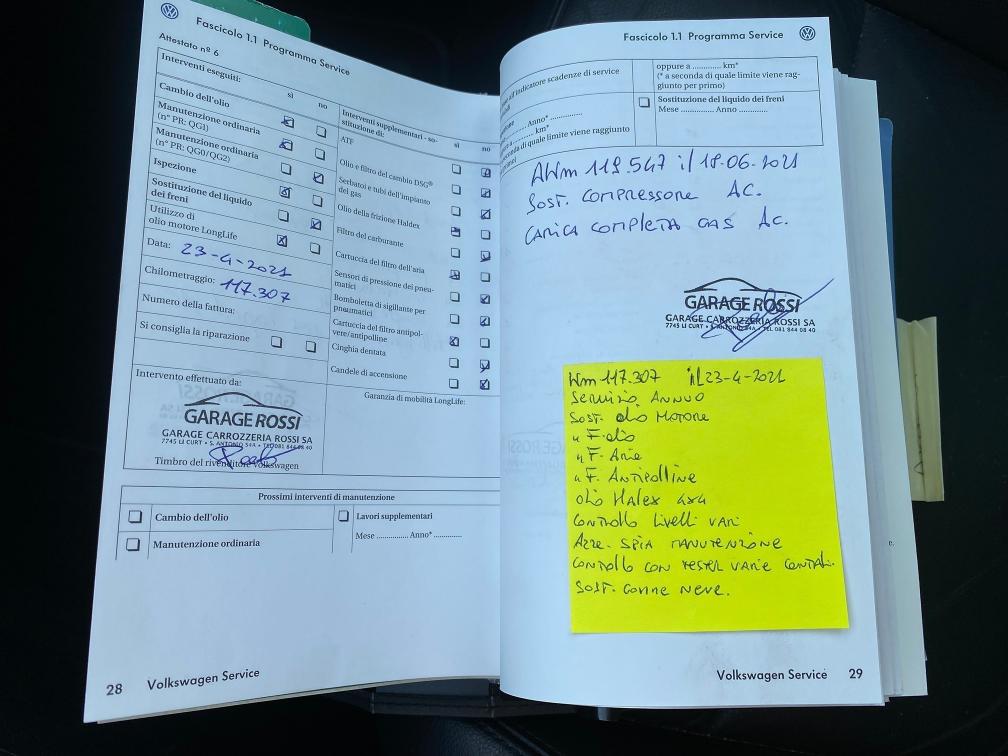 Fascicolo 1.1 Programma Service
Attestato nº 6
Interventi eseguiti:
sì no
Cambio dell'olio
Manutenzione ordinaria
(nº PR: QG1)
Manutenzione ordinaria
(nº PR: QG0/QG2)
Ispezione
Sostituzione del liquido
dei freni
Utilizzo di
olio motore LongLife
Data: 23-4-2021
Chilometraggio: 117.307
Numero della fattura:
Si consiglia la riparazione
Intervento effettuato da:
GARAGE ROSSI
GARAGE CARROZZERIA ROSSI SA
7745 LI CURT • S. ANTONIO 54A • TEL 081 844 08 40
Timbro del rivenditore Volkswagen
Interventi supplementari - so-
stituzione di:
sì no
ATF
Olio e filtro del cambio DSG®
Serbatoi e tubi dell'impianto
del gas
Olio della frizione Haldex
Filtro del carburante
Cartuccia del filtro dell'aria
Sensori di pressione dei pneu-
matici
Bomboletta di sigillante per
pneumatici
Cartuccia del filtro antipol-
vere/antipolline
Cinghia dentata
Candele di accensione
Garanzia di mobilità LongLife:
Prossimi interventi di manutenzione
Cambio dell'olio
Manutenzione ordinaria
Lavori supplementari
Mese ............. Anno* .............
28 Volkswagen Service
Fascicolo 1.1 Programma Service
all'indicatore scadenze di service
Anno* .............
km*
seconda di quale limite viene raggiunto
oppure a ............ km*
(* a seconda di quale limite viene rag-
giunto per primo)
Sostituzione del liquido dei freni
Mese ............ Anno ............
118.547 il 18.06.2021
Sost. Compressore AC.
Carica completa gas AC.
GARAGE ROSSI
GARAGE CARROZZERIA ROSSI SA
7745 LI CURT • S. ANTONIO 54A • TEL 081 844 08 40
Km 117.307 il 23-4-2021
Servizio Annuo
Sost. olio Motore
" F. olio
" F. Aria
" F. Antipolline
olio Halex 4x4
Controllo livelli vari
Azze. spia manutenzione
Controllo con tester varie
Sost. Gomme neve.
Volkswagen Service 29